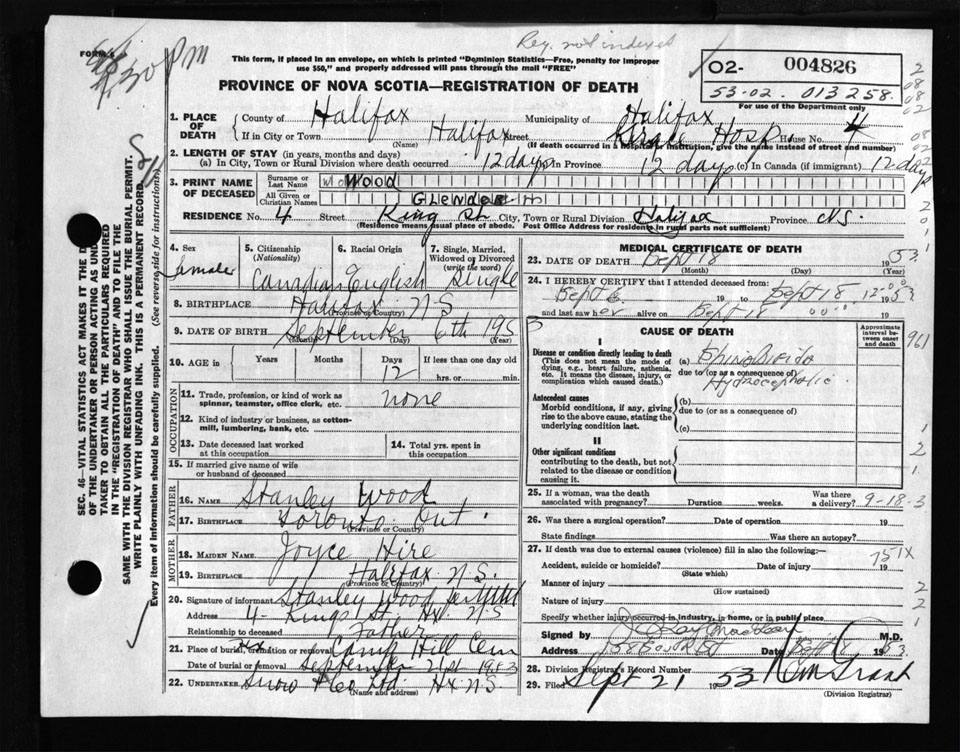 Reg. not indexed
FORM 6
30 PM
This form, if placed in an envelope, on which is printed "Dominion Statistics—Free, penalty for improper
use $50," and properly addressed will pass through the mail "FREE"
PROVINCE OF NOVA SCOTIA—REGISTRATION OF DEATH
02- 004826
53-02. 013258.
For use of the Department only
1. PLACE OF DEATH County of Halifax Municipality of Halifax
If in City or Town Halifax Street Hosp. House No. 4
(Name) (If death occurred in a hospital or institution, give the name instead of street and number)
2. LENGTH OF STAY (in years, months and days)
(a) In City, Town or Rural Division where death occurred 12 days (b) In Province 12 days (c) In Canada (if immigrant) 12 days
3. PRINT NAME OF DECEASED Surname or Last Name Wood
All Given or Christian Names
RESIDENCE No. 4 Street King St. City, Town or Rural Division Halifax Province N.S.
(Residence means usual place of abode. Post Office Address for residents in rural parts not sufficient)
4. Sex Female
5. Citizenship (Nationality) Canadian
6. Racial Origin English
7. Single, Married, Widowed or Divorced (write the word) Single
8. BIRTHPLACE Halifax N.S.
(Province or Country)
9. DATE OF BIRTH September 6th 1953
(Month) (Day) (Year)
10. AGE in Years Months Days 12 If less than one day old hrs. or min.
OCCUPATION
11. Trade, profession, or kind of work as spinner, teamster, office clerk, etc. none
12. Kind of industry or business, as cotton-mill, lumbering, bank, etc.
13. Date deceased last worked at this occupation
14. Total yrs. spent in this occupation
15. If married give name of wife or husband of deceased
FATHER
16. NAME Stanley Wood
17. BIRTHPLACE Toronto Ont.
(Province or Country)
MOTHER
18. MAIDEN NAME Joyce Hire
19. BIRTHPLACE Halifax N.S.
(Province or Country)
20. Signature of informant Stanley Wood
Address 4- Kings St. Hx N.S
Relationship to deceased Father
21. Place of burial, cremation or removal Camp Hill Cem
Date of burial or removal September 21st 1953
22. UNDERTAKER Snow & Co Ltd. Hx N.S
(Name and address)
MEDICAL CERTIFICATE OF DEATH
23. DATE OF DEATH Sept 18 1953
(Month) (Day) (Year)
24. I HEREBY CERTIFY that I attended deceased from:
Sept 6 to Sept 18 1953
and last saw her alive on Sept 18 19
CAUSE OF DEATH
Approximate interval between onset and death
I
Disease or condition directly leading to death
(This does not mean the mode of dying, e.g., heart failure, asthenia, etc. It means the disease, injury, or complication which caused death.)
(a) Spina Bifida
due to (or as a consequence of)
Hydrocephalic
Antecedent causes
Morbid conditions, if any, giving rise to the above cause, stating the underlying condition last.
(b)
due to (or as a consequence of)
(c)
II
Other significant conditions
contributing to the death, but not related to the disease or condition causing it.
25. If a woman, was the death associated with pregnancy? Duration weeks. Was there a delivery?
9-18-3
26. Was there a surgical operation? Date of operation 19
State findings Was there an autopsy?
27. If death was due to external causes (violence) fill in also the following:—
Accident, suicide or homicide? Date of injury 19
(State which)
Manner of injury
(How sustained)
Nature of injury
Specify whether injury occurred in industry, in home, or in public place
Signed by M.D.
Address Date Sept 18 1953.
28. Division Registrar's Record Number
29. Filed Sept 21 1953 Grant
(Division Registrar)
961
751X
SEC. 46—VITAL STATISTICS ACT MAKES IT THE D
OF THE UNDERTAKER OR PERSON ACTING AS UNDE
TAKER TO OBTAIN ALL THE PARTICULARS REQUIRED
IN THE "REGISTRATION OF DEATH" AND TO FILE THE
SAME WITH THE DIVISION REGISTRAR WHO SHALL ISSUE THE BURIAL PERMIT.
WRITE PLAINLY WITH UNFADING INK. THIS IS A PERMANENT RECORD.
Every item of information should be carefully supplied. (See reverse side for instructions)